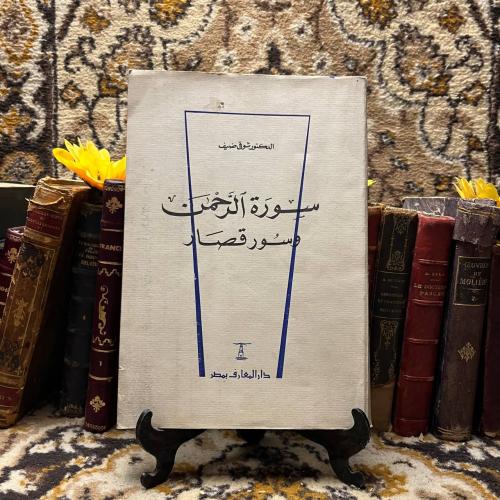 الدكتور شوقي ضيف
سورة الرَّحمٰن
وسور قصار
دار المعارف بمصر
FRANCE
1
ŒUVRES
DE
MOLIÈRE